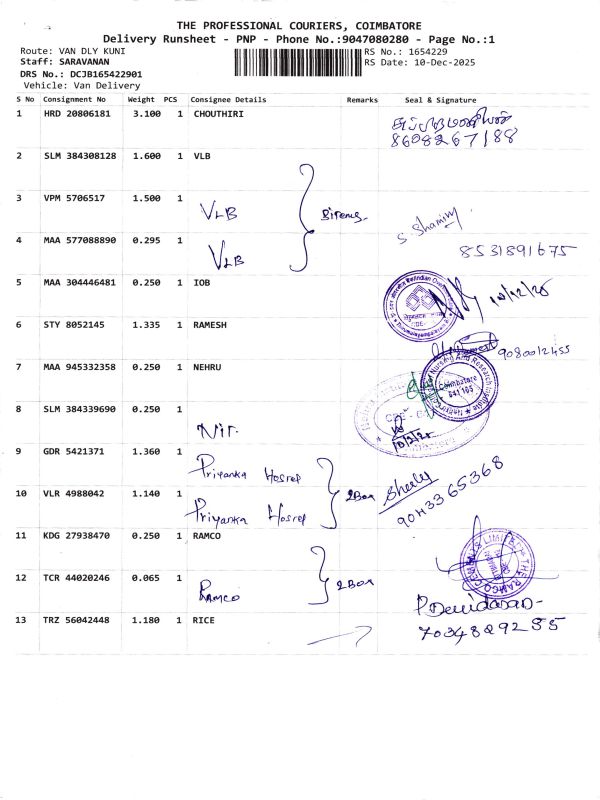 THE PROFESSIONAL COURIERS, COIMBATORE
Delivery Runsheet - PNP - Phone No.:9047080280 - Page No.:1
Route: VAN DLY KUNI RS No.: 1654229
Staff: SARAVANAN RS Date: 10-Dec-2025
DRS No.: DCJB165422901
Vehicle: Van Delivery
S No Consignment No Weight PCS Consignee Details Remarks Seal & Signature
1 HRD 20806181 3.100 1 CHOUTHIRI
8608267188
2 SLM 384308128 1.600 1 VLB
3 VPM 5706517 1.500 1 VLB
S. Shamim
4 MAA 577088890 0.295 1 VLB 8531891675
5 MAA 304446481 0.250 1 IOB 10/12/25
6 STY 8052145 1.335 1 RAMESH
9080012455
7 MAA 945332358 0.250 1 NEHRU
Coimbatore
641 105
8 SLM 384339690 0.250 1
9 GDR 5421371 1.360 1 Priyanka Hosrel
10 VLR 4988042 1.140 1 Priyanka Hosrel 2Box Sheely
9043365368
11 KDG 27938470 0.250 1 RAMCO
12 TCR 44020246 0.065 1 RAMCO 2Box
P. Devidasan
7034829255
13 TRZ 56042448 1.180 1 RICE